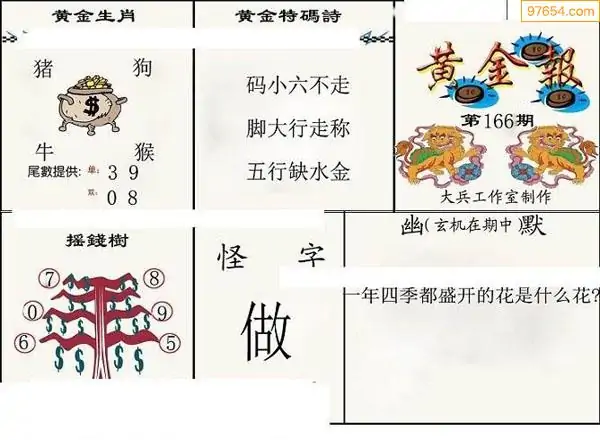 97654.com
黄金生肖
猪 狗
$
牛 猴
尾數提供: 单: 3 9
双: 0 8
黄金特碼詩
码小六不走
脚大行走称
五行缺水金
黄金報
第166期
大兵工作室制作
摇錢樹
7 8
0 9
6 5
$ $ $ $ $ $ $ $ $ $ $ $
怪 字
做
幽(玄机在期中)默
一年四季都盛开的花是什么花?